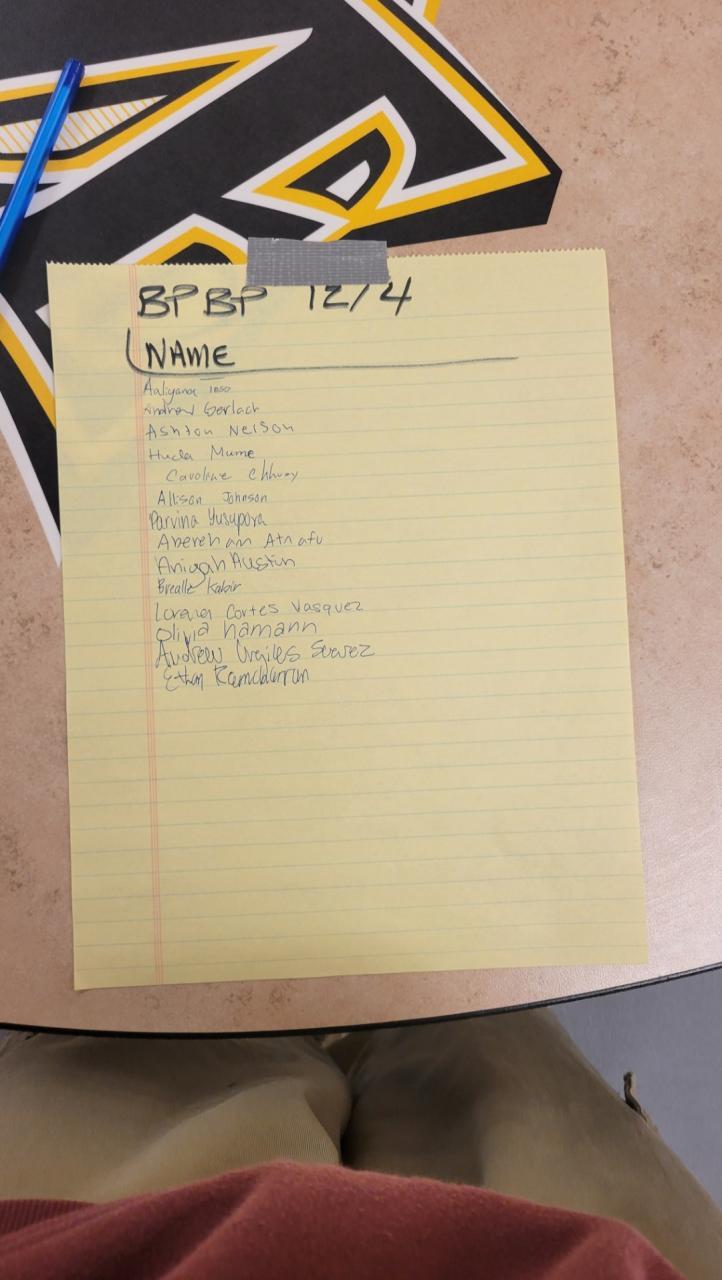 BPBP 12/4
NAME
Aaliyana
Andrew Gerlach
Ashton Nelson
Huda Mume
Caroline Chhuoy
Allison Johnson
Parvina Yusupova
Abereham Atnafu
Aniyah Austin
Brealle Kabir
Lorena Cortes Vasquez
Olivia hamann
Andrew Urgiles Suarez
Ethan Ramcharran